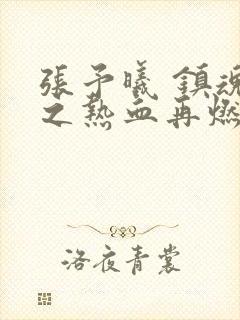 張予曦 鎮魂
之熱血再燃
洛夜青裳